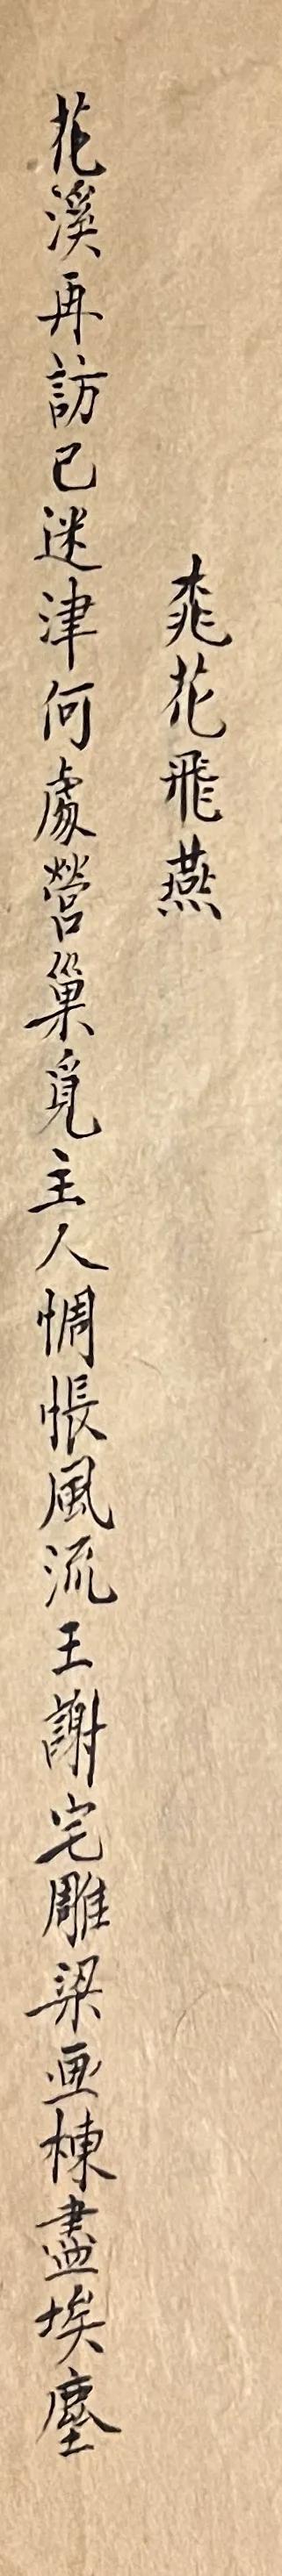 桃花飛燕
花溪再訪已迷津何處營巢覓主人惆悵風流王謝宅雕梁画棟盡埃塵